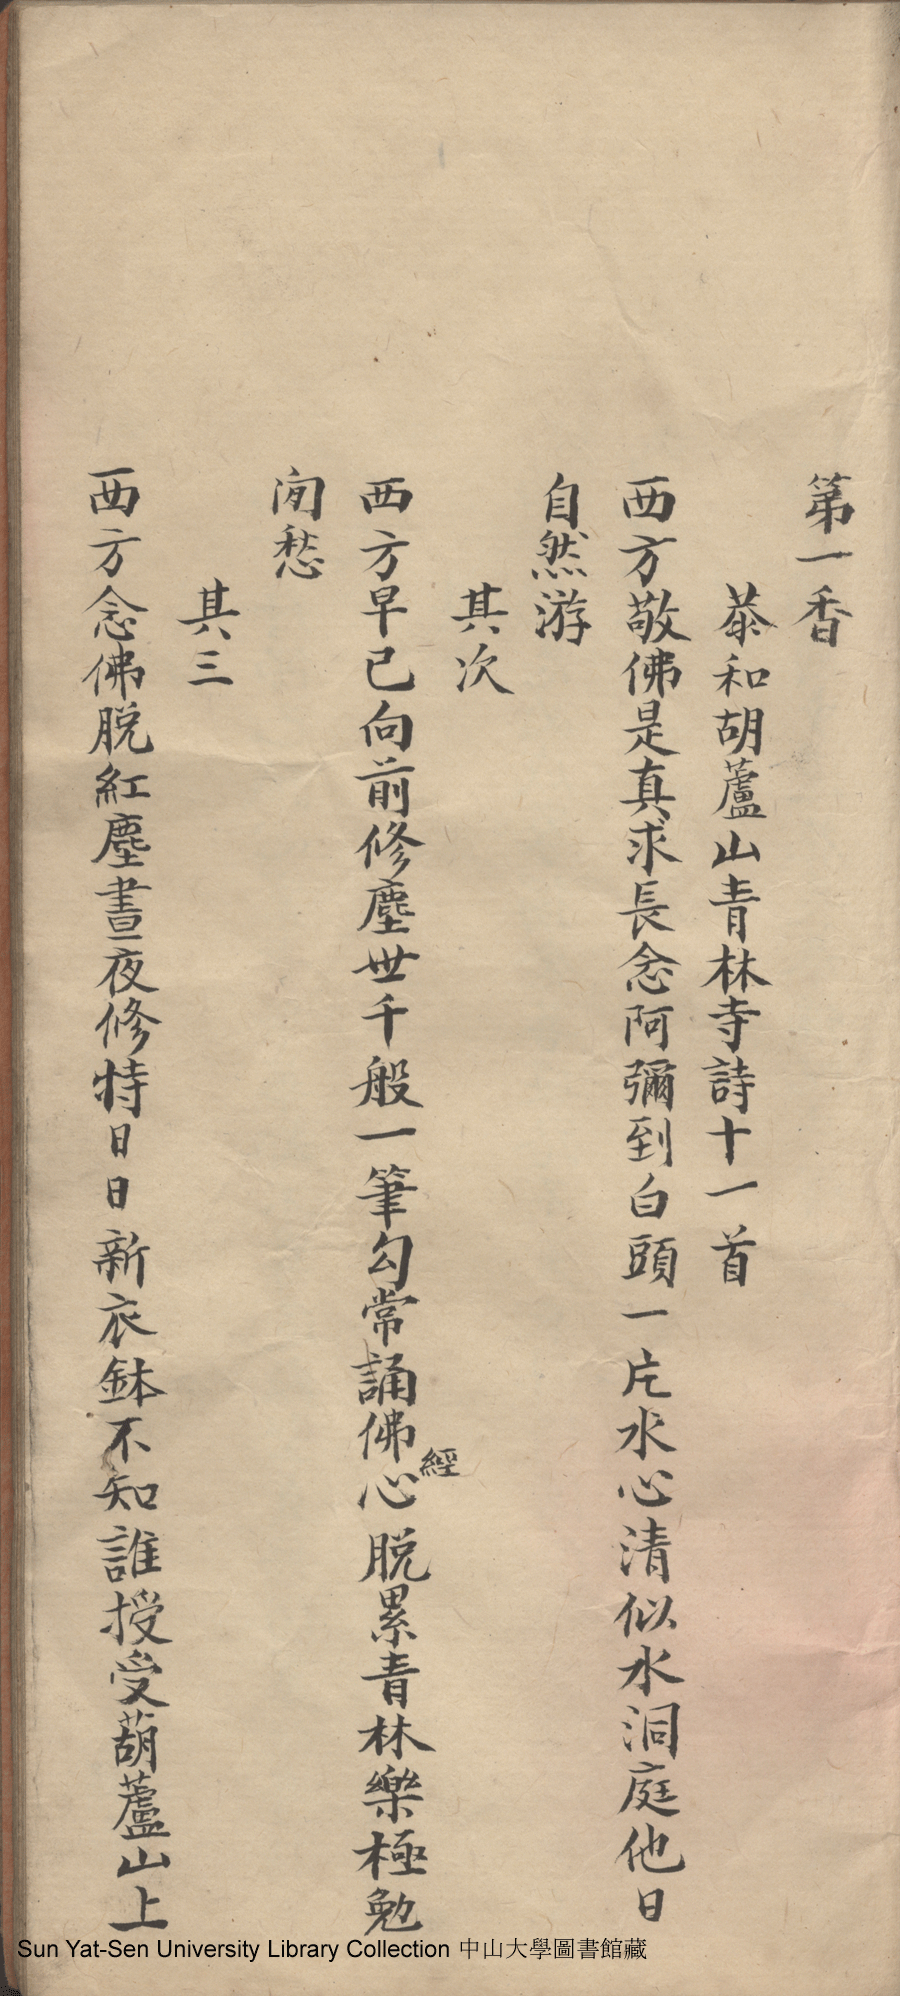 第一香
恭和胡蘆山青林寺詩十一首
西方敬佛是真求長念阿彌到白頭一片水心清似水洞庭他日
自然游
其次
西方早已向前修塵世千般一筆勾常誦佛心經脱累青林樂極勉
閑愁
其三
西方念佛脱紅塵晝夜修特日日新衣鉢不知誰授受葫蘆山上
Sun Yat-Sen University Library Collection 中山大學圖書館藏